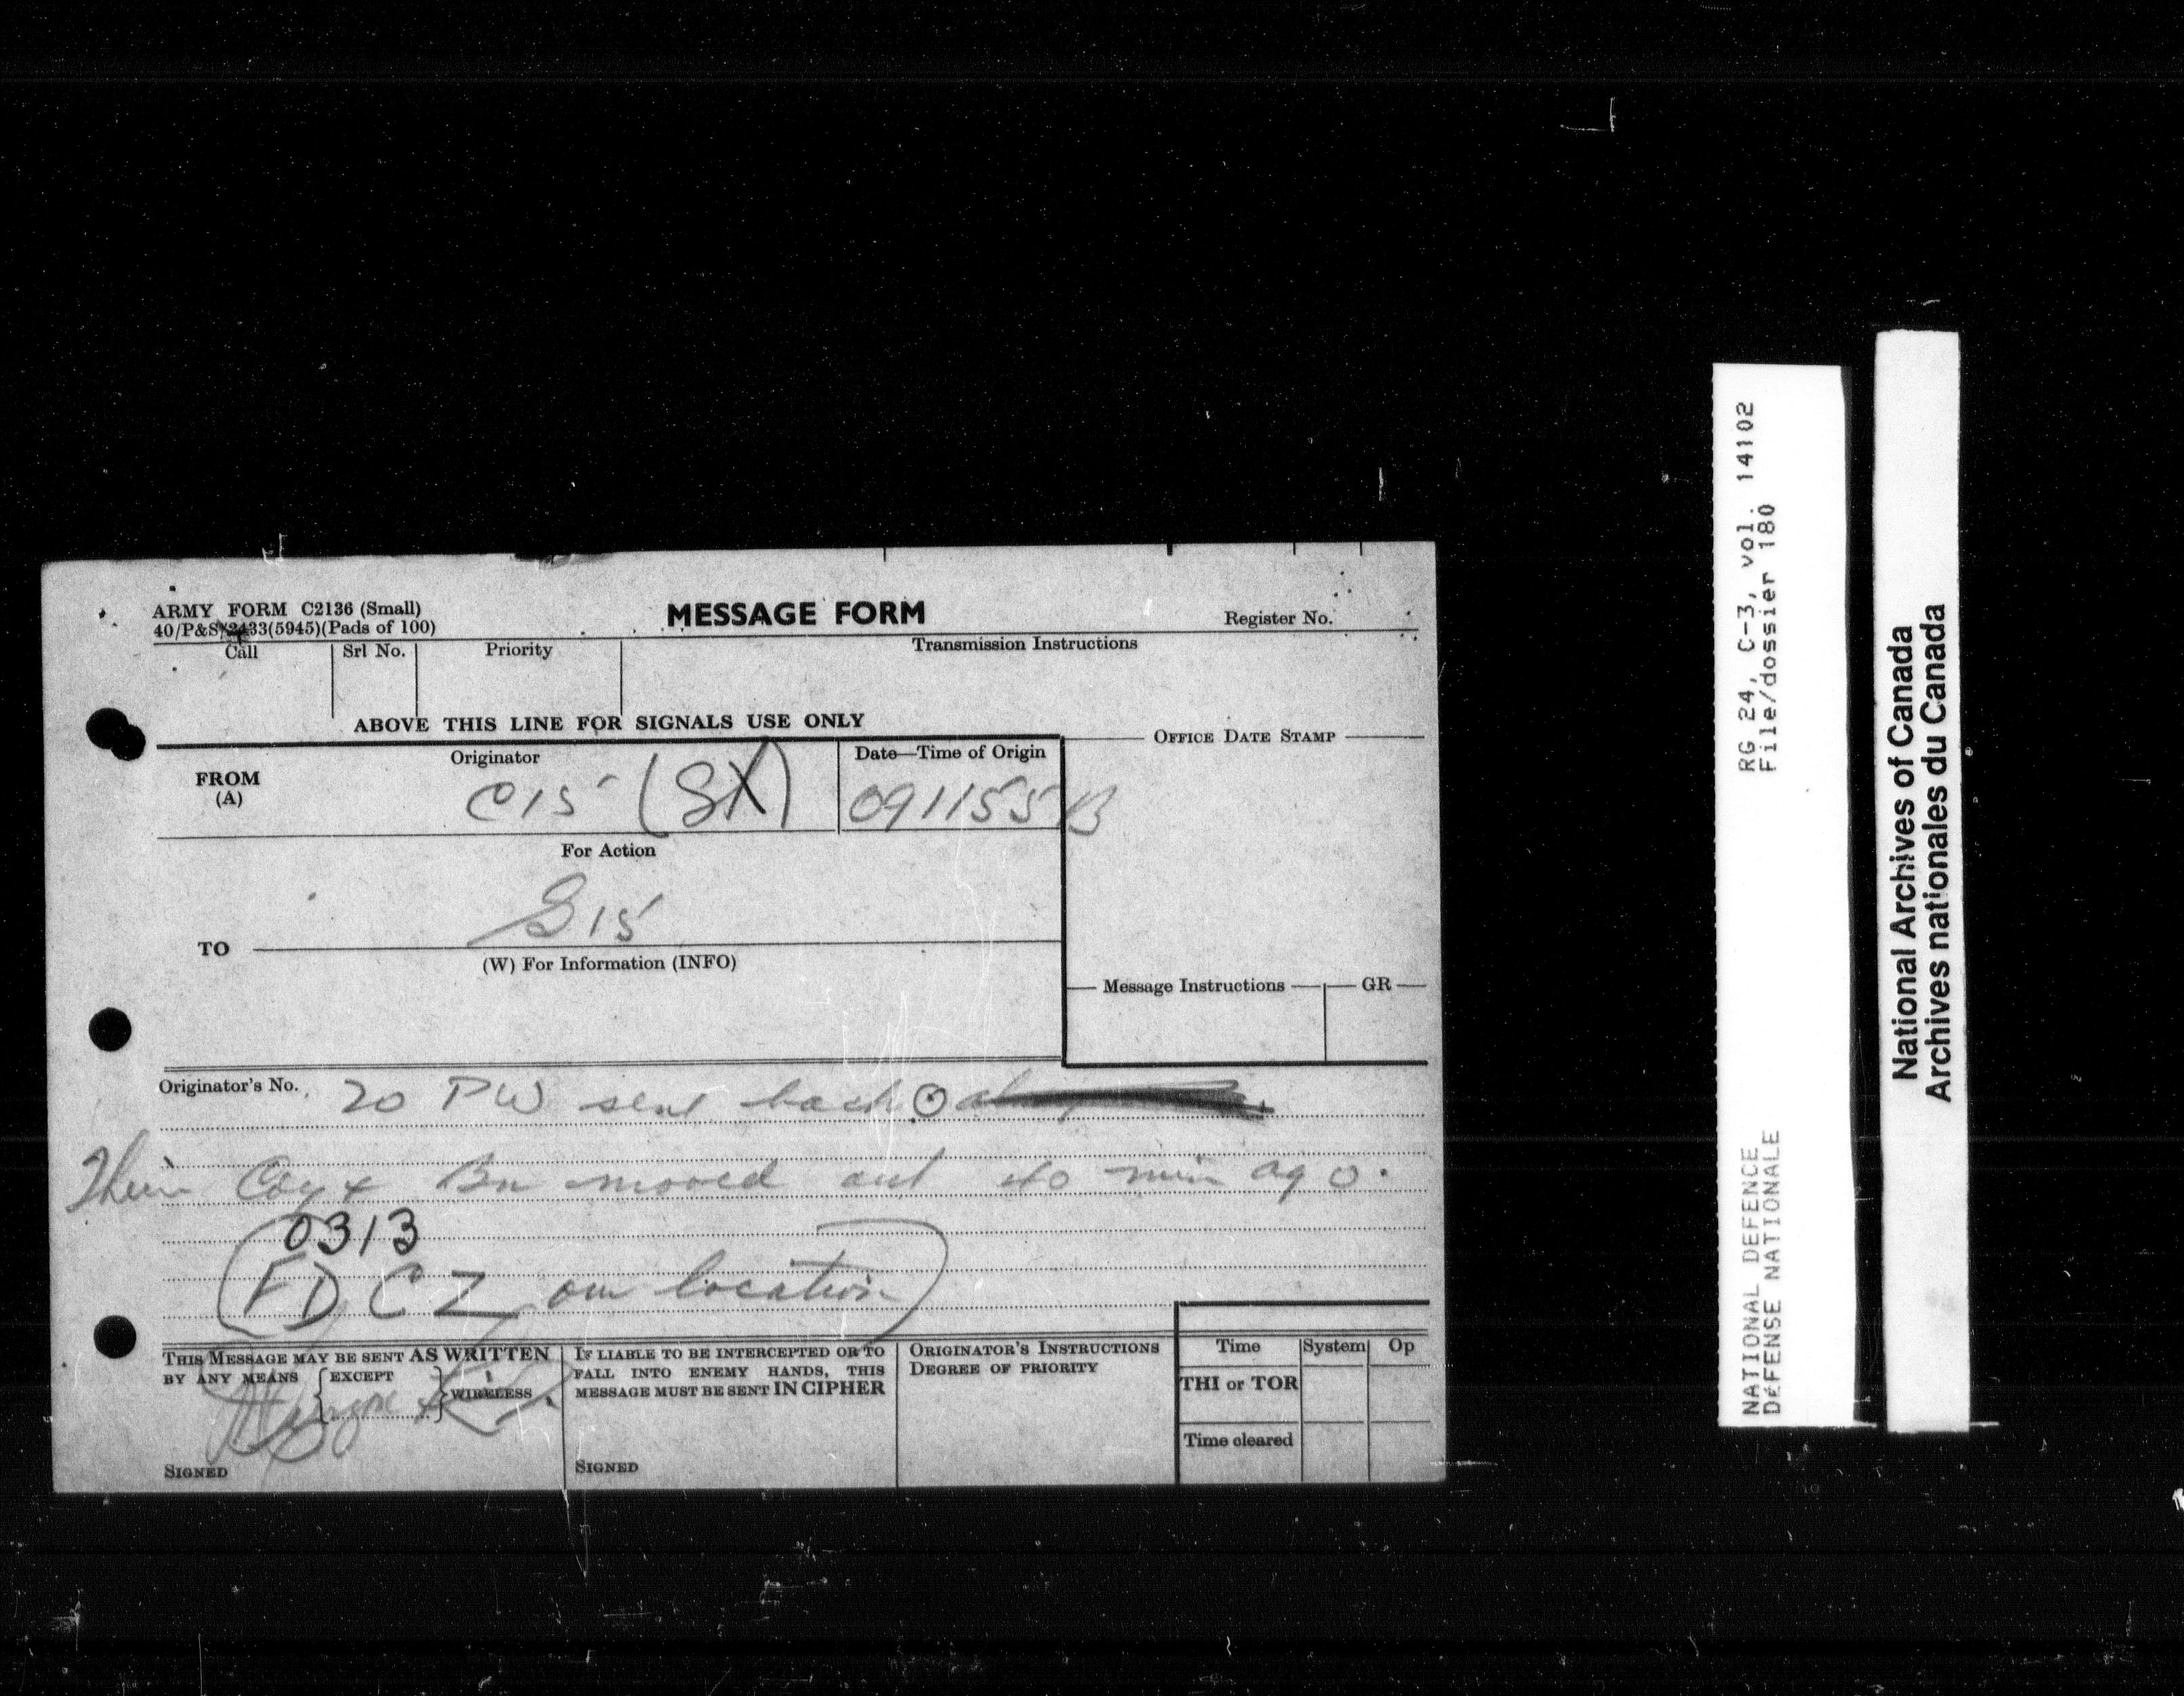 ARMY FORM C2136 (Small)
40/P&S 2433(5945)(Pads of 100)
MESSAGE FORM
Register No.
Call
Srl No.
Priority
Transmission Instructions
ABOVE THIS LINE FOR SIGNALS USE ONLY
FROM
(A)
Originator
C15 (SX)
Date—Time of Origin
091155 B
OFFICE DATE STAMP
For Action
S15
TO
(W) For Information (INFO)
Message Instructions
GR
Originator's No.
20 PW sent back
Their Coy + Bn moved out 40 min ago.
0313
(FDCZ our location)
THIS MESSAGE MAY BE SENT AS WRITTEN
BY ANY MEANS { EXCEPT } WIRELESS
SIGNED
IF LIABLE TO BE INTERCEPTED OR TO
FALL INTO ENEMY HANDS, THIS
MESSAGE MUST BE SENT IN CIPHER
SIGNED
ORIGINATOR'S INSTRUCTIONS
DEGREE OF PRIORITY
Time
System
Op
THI or TOR
Time cleared
RG 24, C-3, vol. 14102
File/dossier 180
NATIONAL DEFENCE
DÉFENSE NATIONALE
National Archives of Canada
Archives nationales du Canada